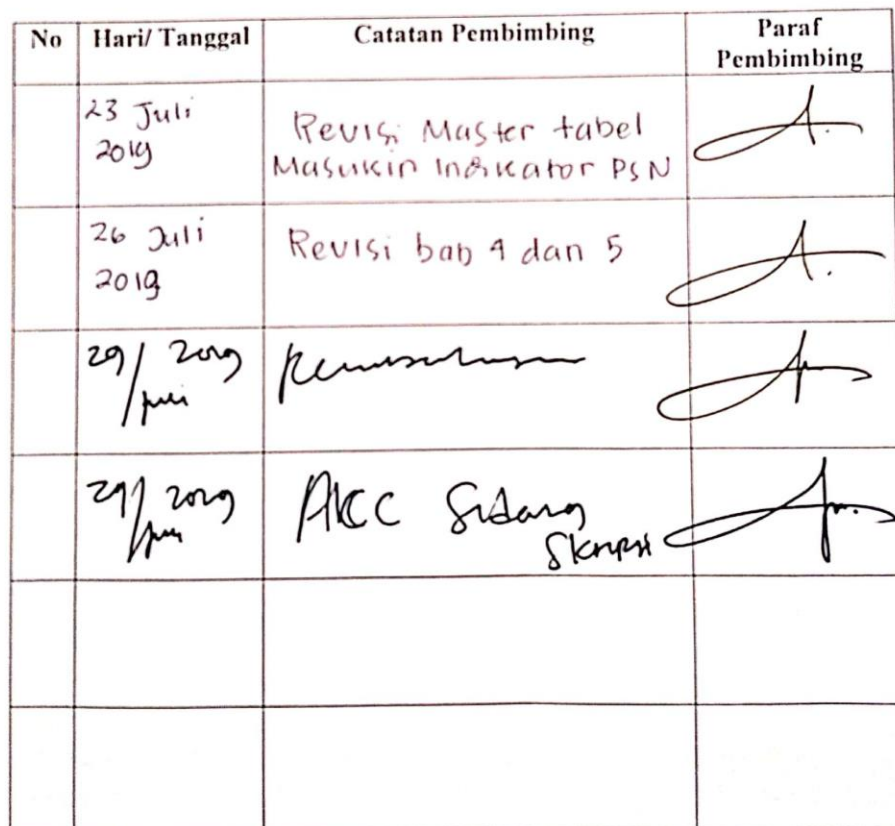 No Hari/ Tanggal Catatan Pembimbing Paraf
Pembimbing
23 Juli
2019
Revisi Master tabel
Masukin Indikator PSN
26 Juli
2019
Revisi bab 4 dan 5
29/ 2019
29/ 2019
ACC Sidang
Skripsi